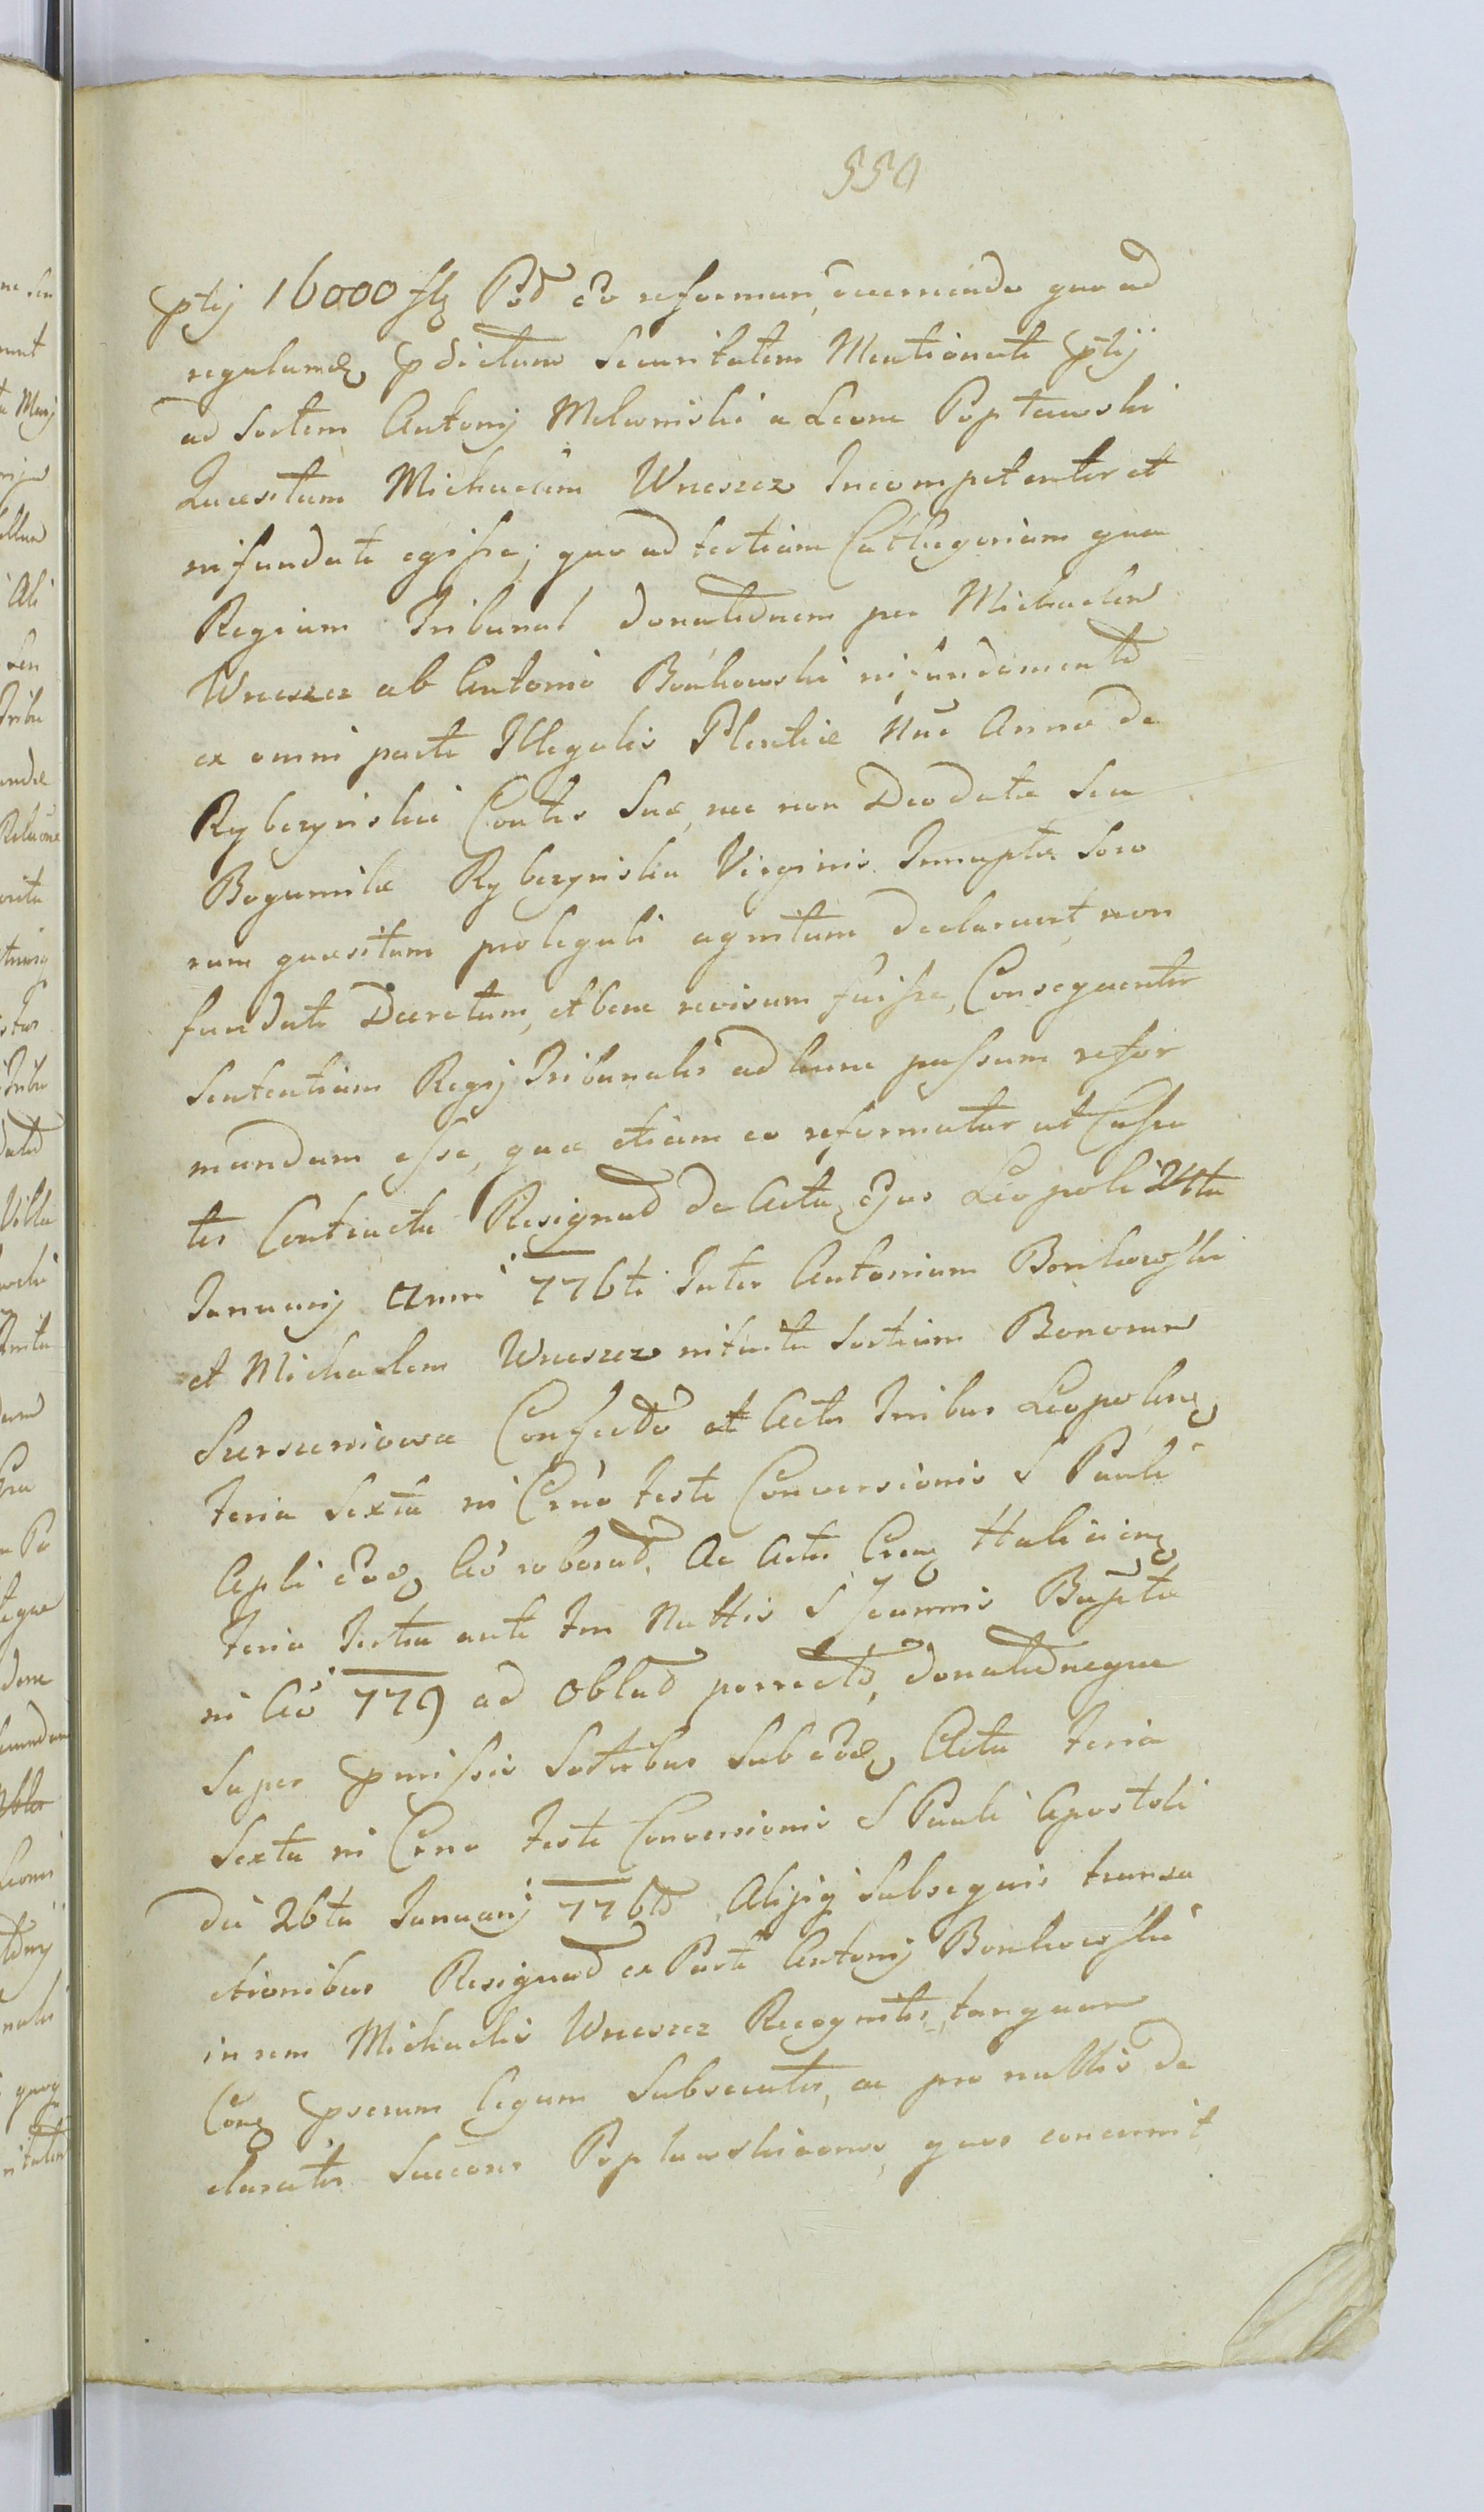 550
ptij 16000 flq Pod eo reforman, decernendo quo ad
regulamq pdictam Securitatem Mentionati ptij
ad Sortem Antonij Melewiski a Leone Poptawski
Quaesitam Michaelem Wneszcz Incompetenter et
nifundate egisse; quo ad tertiam Cathegoriam qua
Regium Tribunal donatidnem per Michaelem
Wneszcz ab Antonio Bonkowski in fundamento
ex omni parte Illegalis Plentiae Nuc Anna de
Rybczynskie Contis Suae, nec non Deodata Seu
Bogumila Rybczynska Virginis Innupta Soro
rum quaesitam pro legali agnitam declaravit, non
fundate Decretum, et bene revisum fuisse, Consequenter
Sententiam Regij Tribunalis ad hunc passum refor
mandam esse, quae etiam eo reformatur ut Cassa
tis Contractu Resignad de Actu, Ejus Leopoli 24ta
Januarij Anni 776ti Inter Antonium Bonkowski
et Michaelem Wneszcz intuitu Sortium Bonorum
Confecto et Actis Tribus Leopolinq
Feria Sexta in Crno Festi Conversionis S Pauli
Apli eodq Ao roborad. Ac Actis Crenq Halicienq
Feria Tertia ante Fm Nattis S Joannis Bapta
in Ao 779 ad Oblad porrecto, donatidneque
Super pmissis Sortibus Sub eodq Actu Feria
Sexta in Crno Festi Conversionis S Pauli Apostoli
die 26ta Januarij 776to, Alijsq Subsequis transa
ctionibus Resignad ex Parte Antonij Bonkowski
in rem Michaelis Wneszcz Recognitis, tanquam
Conq pserum legum Subsecutis, ac pro nullis de
claratis Succors Poplawskianos, quos concernit